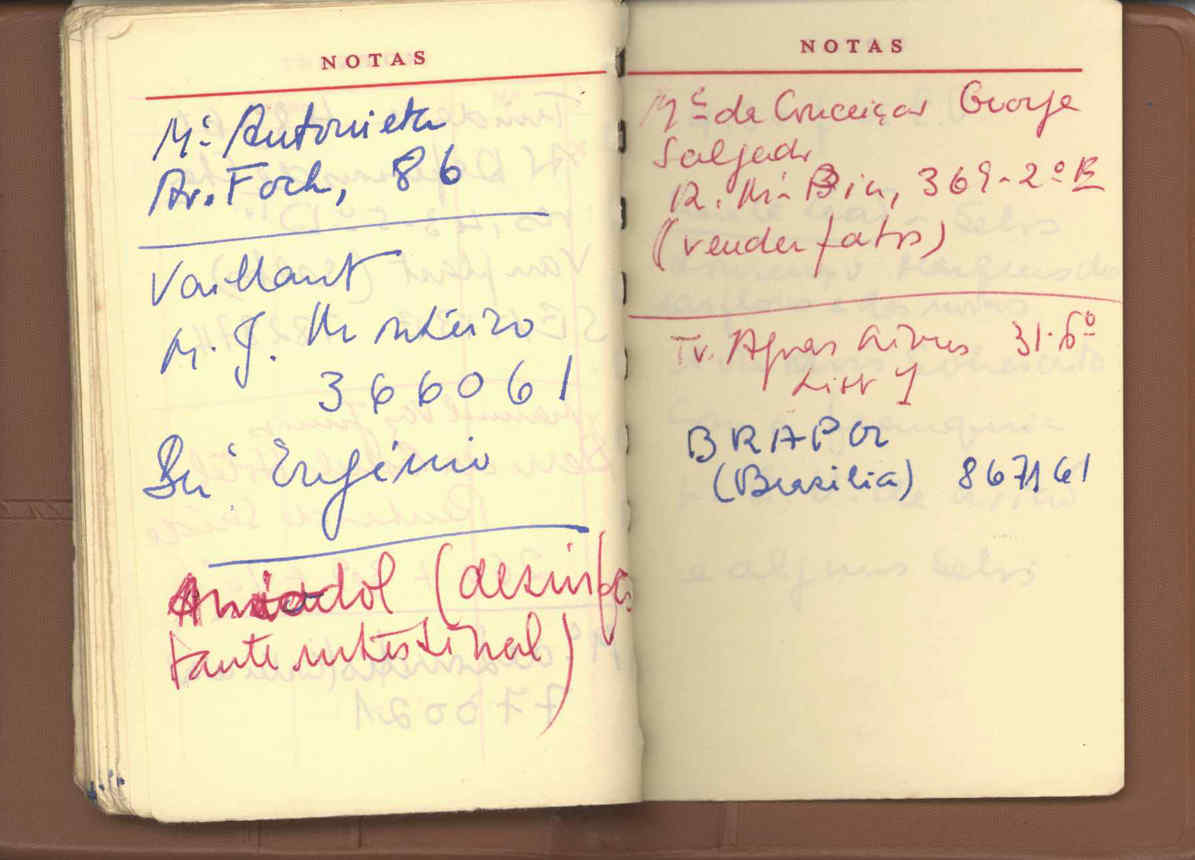 NOTAS
Mª Antonieta
Av. Foch, 86
Vaillant
M. J. Monteiro
366061
Eugénio
(desinfec
tante intestinal)
NOTAS
Mª da Conceição George
Salgado
R. 369-2º B
(vender fatos)
Tv. Águas Livres 31-6º
BRAPOR
(Brasília) 867161